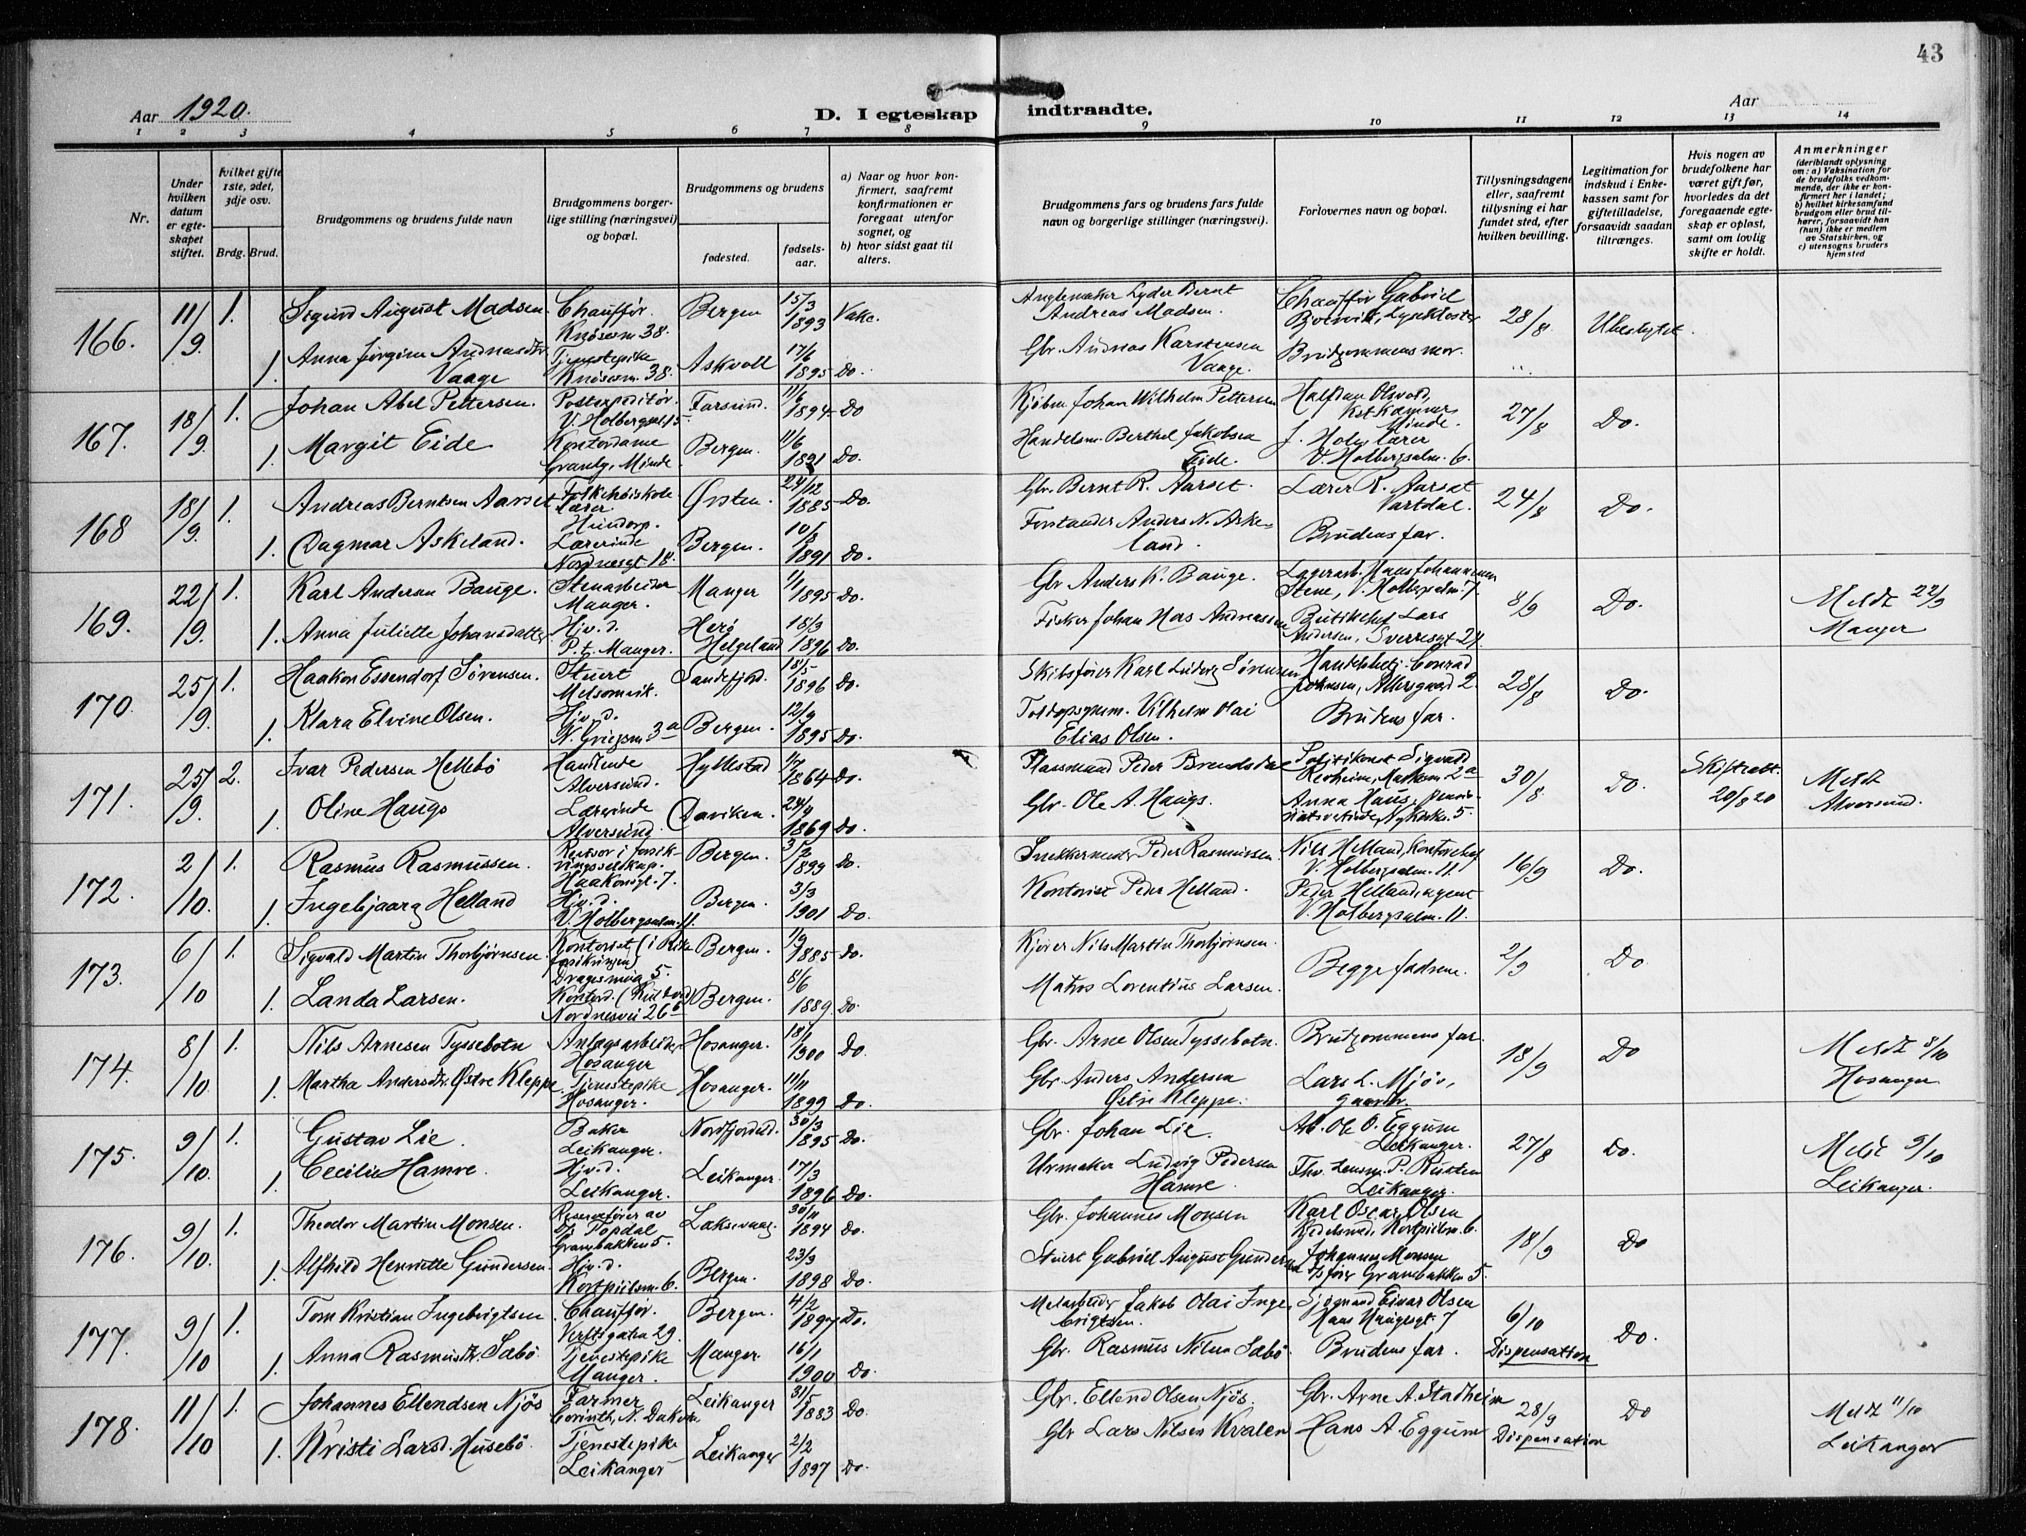 43
Aar 1920.
D. I egteskap indtraadte.
Aar
1 2 3 4 5 6 7 8 9 10 11 12 13 14
Nr.
Under hvilken datum er egteskapet stiftet.
hvilket gifte 1ste, 2det, 3dje osv.
Brdg. Brud.
Brudgommens og brudens fulde navn
Brudgommens borgerlige stilling (næringsvei) og bopæl.
Brudgommens og brudens
fødested.
fødselsaar.
a) Naar og hvor konfirmert, saafremt konfirmationen er foregaat utenfor sognet, og
b) hvor sidst gaat til alters.
Brudgommens fars og brudens fars fulde navn og borgerlige stillinger (næringsvei).
Forlovernes navn og bopæl.
Tillysningsdagene eller, saafremt tillysning ei har fundet sted, efter hvilken bevilling.
Legitimation for indskud i Enkekassen samt for giftetilladelse, forsaavidt saadan tiltrænges.
Hvis nogen av brudefolkene har været gift før, hvorledes da det foregaaende egteskap er opløst, samt om lovlig skifte er holdt.
Anmerkninger (deriblandt oplysning om: a) Vaksination for de brudefolks vedkommende, der ikke er konfirmert her i landet; b) hvilket kirkesamfund brudgom eller brud tilhører, forsaavidt han (hun) ikke er medlem av Statskirken, og c) utensogns bruders hjemsted
166. 11/9 1. Sigurd August Madsen. Chauffør Knøsesm 38. Bergen 15/3 1893 Vake. Lyder Bernt Andreas Madsen. Chauffør Gabriel 28/8 Ubeskyttet
1. Anna Jørgine Andreasdtr. Vaage Tjenestepike Knøsesm. 38. Askvoll 17/6 1895 Do. Gbr. Andreas Karstensen Vaage. Brudgommens mor.
167. 18/9 1. Johan Abel Pettersen. Postexpeditør V. Holbergsal. 15 Farsund. 11/6 1894 Do Kjøbm. Johan Wilhelm Pettersen Halfdan Olsvold, Minde. 27/8 Do.
1. Margit Eide Kontordame Granlg, Minde Bergen. 11/6 1891 Do. Handelsm. Berthel Jakobsen Eide. J. Hole, lærer V. Holbergsalm. 6.
168 18/9 1. Andreas Berntsen Aarset Folkehøiskolelærer Hundorp. Ørsten. 24/12 1885 Do. Gbr. Bernt R. Aarset. Lærer R. Aarset Vartdal. 24/8 Do.
1. Dagmar Askeland. Lærerinde Nordnesgt 18. Bergen. 10/8 1891 Do. Forstander Anders N. Askeland. Brudens far.
169. 22/9 1. Karl Andersen Bauge. Stenarbeider Manger. Manger 1/1 1895 Do. Gbr. Anders K. Bauge. Lagerarb. Hans Johannesen Stene, V. Holbergsalm. 7. 8/9 Do. Meldt 22/9 Manger
1. Anna Juliette Johansdatter Hjv. d. P.t. Manger. Herø Helgeland 18/3 1896 Do. Fisker Johan Andreassen Butikchef Lars Andersen, Sverresgt 24.
170. 25/9 1. Haakon Essendorf Sørensen. Stuert Melsomvik. Sandefjord. 18/5 1896 Do. Skibsfører Karl Ludvig Sørensen Handelsbetj. Conrad Johnsen, 28/8 Do.
1. Klara Elvine Olsen. Hjv. d. N. Griegsm 3a Bergen. 12/9 1895 Do. Toldopsynsm. Vilhelm Olai Elias Olsen. Brudens far.
171. 25/9 2. Ivar Pedersen Hellebö Handlende Alversund. Hyllestad 1864 Do. Plassmand Peder Brendsdal Politikonst Sigvald 30/8 Do. Skifteatt. 20/8 20 Meldt Alversund.
1. Oline Haugs Lærerinde Alversund. Daviken. 24/9 1869 Do. Gbr. Ole A. Haugs. Anna Haus, Nykirkk. 5.
172. 2/10. 1. Rasmus Rasmussen. Revisor i forsikringsselskap. Haakonsgt. 7. Bergen. 3/2 1899 Do. Snekkermester Peder Rasmussen. Nils Helland, Kontorchef V. Holbergsalm. 11. 16/9 Do.
1. Ingebjaarg Helland Hjv. d. V. Holbergsalm. 11. Bergen. 3/3 1901 Do. Kontorist Peder Helland. Peder Helland, agent V. Holbergsalm. 11.
173. 6/10 1. Sigvald Martin Thorbjørnsen. Kontorist (i Riks forsikringen) Dragesmug 5. Bergen. 1/9 1885 Do. Kjører Nils Martin Thorbjørnsen. Begge fadrene. 2/9 Do
1. Landa Larsen. Kontord. Nordnesvei 26 b Bergen. 8/6 1889 Do. Matros Lorentius Larsen.
174. 8/10 1. Nils Arnesen Tyssebotn Anlægsarbeider Hosanger Hosanger. 18/1 1900 Do. Gbr. Arne Olsen Tyssebotn. Brudgommens far. 18/9 Do Meldt 8/10 Hosanger
1. Martha Andersdtr. Østre Kleppe. Tjenestepike Hosanger. Hosanger. 11/11 1899 Do. Gbr. Anders Andersen Østre Kleppe. Lars L. Mjøs, gaardbr.
175. 9/10. 1. Gustav Lie. Baker Leikanger. Nordfjordeid. 30/3 1895 Do. Gbr. Johan Lie. Ole O. Eggum Leikanger. 27/8 Do. Meldt 9/10 Leikanger.
1. Cecilie Hamre. Hjv. d. Leikanger. Leikanger. 17/3 1896 Do. Urmaker Ludvig Pedersen Hamre. Fhv. Lensm. P. Rusten Leikanger.
176. 9/10. 1. Theodor Martin Monsen. Reservefører av D/S Topdal Granebakken 5. Laksevaag. 30/11 1894 Do. Gbr. Johannes Monsen Karl Oscar Olsen Kjedelsmed, Kortpiilsm. 6. 18/9 Do
1. Alfhild Henriette Gundersen. Hjv. d. Kortpiilsm. 6. Bergen. 23/3 1898 Do. Stuert Gabriel August Gundersen Johannes Monsen Granebakken 5.
177. 9/10 1. Tom Kristian Ingebrigtsen Chauffør. Verftsgaten 29. Bergen. 4/2 1897 Do. Jakob Olai Ingebrigtsen. Sjømand Einar Olsen Hans Haugesgt. 7 6/10 Dispensation Do.
1. Anna Rasmusdtr. Sæbö. Tjenestepike Manger. Manger. 16/1 1900 Do. Gbr. Rasmus Nilsen Sæbö. Brudens far.
178. 11/10 1. Johannes Ellendsen Njøs Farmer Corinth, N. Dakota Leikanger 31/5 1883 Do. Gbr. Ellend Olsen Njøs. Gbr. Arne A. Stadheim 28/9 Dispensation Do Meldt 11/10 Leikanger
1. Kristi Larsd. Husebö. Tjenestepike Leikanger Leikanger 2/2 1897 Do. Gbr Lars Nilsen Kvalen Hans A Eggum